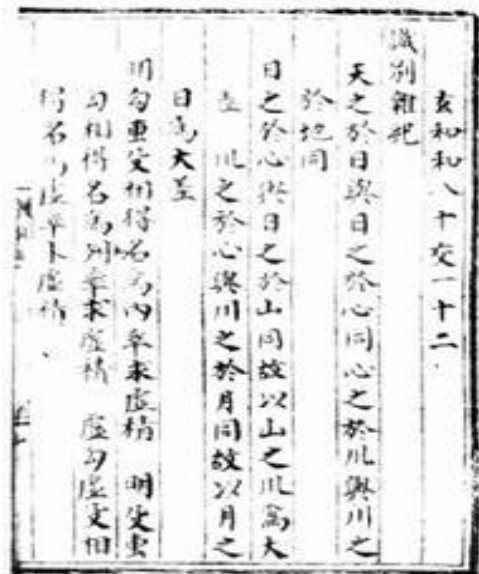 袁和和八十交一十二
識別雜記
天之於日與日之於心同心之於川與川之
於地同
日之於心與日之於山同故以山之川為大
差 川之於心與川之於月同故以月之
日為大差
明勾重叀相得名為內率求虛積 明叀重
勾相得名為外率求虛積 虛勾虛叀相
得名為虛率求虛積